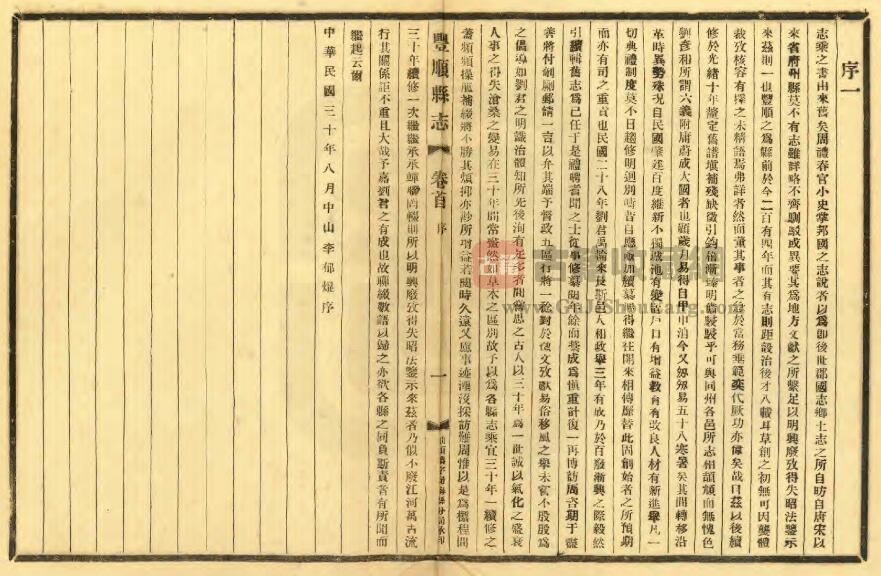 序一
志乘之書由來舊矣周禮春官小史掌邦國之志說者以爲卽後世郡國志鄉土志之所自昉自唐宋以
來省府州縣莫不有志雖詳略不齊駁或異要其爲地方文獻之所繫足以明興廢攷得失昭法鑒示
來茲則一也豐順之爲縣前於今二百有四年而其有志則距設治後才八載耳草創之初無可因襲體
裁攷核容有擇之未精語焉弗詳者然而董其事者之於當務垂範奕代厥功亦偉矣哉曰茲以後續
修於光緒十年釐定舊譜塡補殘缺徵引明備駸駸乎可與同州各邑所志相頡頏而無愧色
劉彥和所謂六義附庸蔚成大國者也顧歲月易得自甲申洎今又匆匆易五十八寒暑矣其間轉移沿
革時異勢殊况自民國肇建百度維新不獨城池有變戶口有增益敎育有改良人材有新進舉凡一
切典禮制度莫不日趨修明迥別疇昔自應加續纂得繼往開來相傳靡替此因創始者之所預期
而亦有司之重責也民國二十八年劉君禹輪來長斯邑人和政舉三年有成乃於百廢漸興之際毅然
引續輯舊志爲己任于是禮聘耆聞之士從事修纂閱年餘而藁成爲愼重計復一再博訪周咨期于盡
善將付剞劂郵請一言以弁其端予督政五區行將一稔對於徵文攷獻易俗移風之舉未嘗不殷殷爲
之倡導如劉君之明識治體知所先後洵有足多者間嘗思之古人以三十年爲一世誠以氣化之盛衰
人事之得失滄桑之變易在三十年間常盛然如草木之區別故予以爲各縣志乘宜三十年一續修之
蓋頻頻操觚補綴將不勝其煩抑亦尠所增益若隔時久遠又慮事迹湮沒採訪難周惟以是爲標程間
三十年續修一次繼繼承承蟬聯勿輟則所以明興廢攷得失昭法鑒示來茲者乃似不廢江河萬古流
行其關係詎不重且大哉予嘉劉君之有成也故聊綴數語以歸之亦欲各縣之同負斯責者有所聞而
繼起云爾
中華民國三十年八月中山李郁焜序
豐順縣志
卷首
序
一
古籍收藏網
www.GuJiShouCang.com